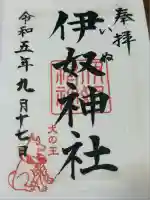 奉拝
伊奴神社
いぬ
令和五年九月十七日
犬の王